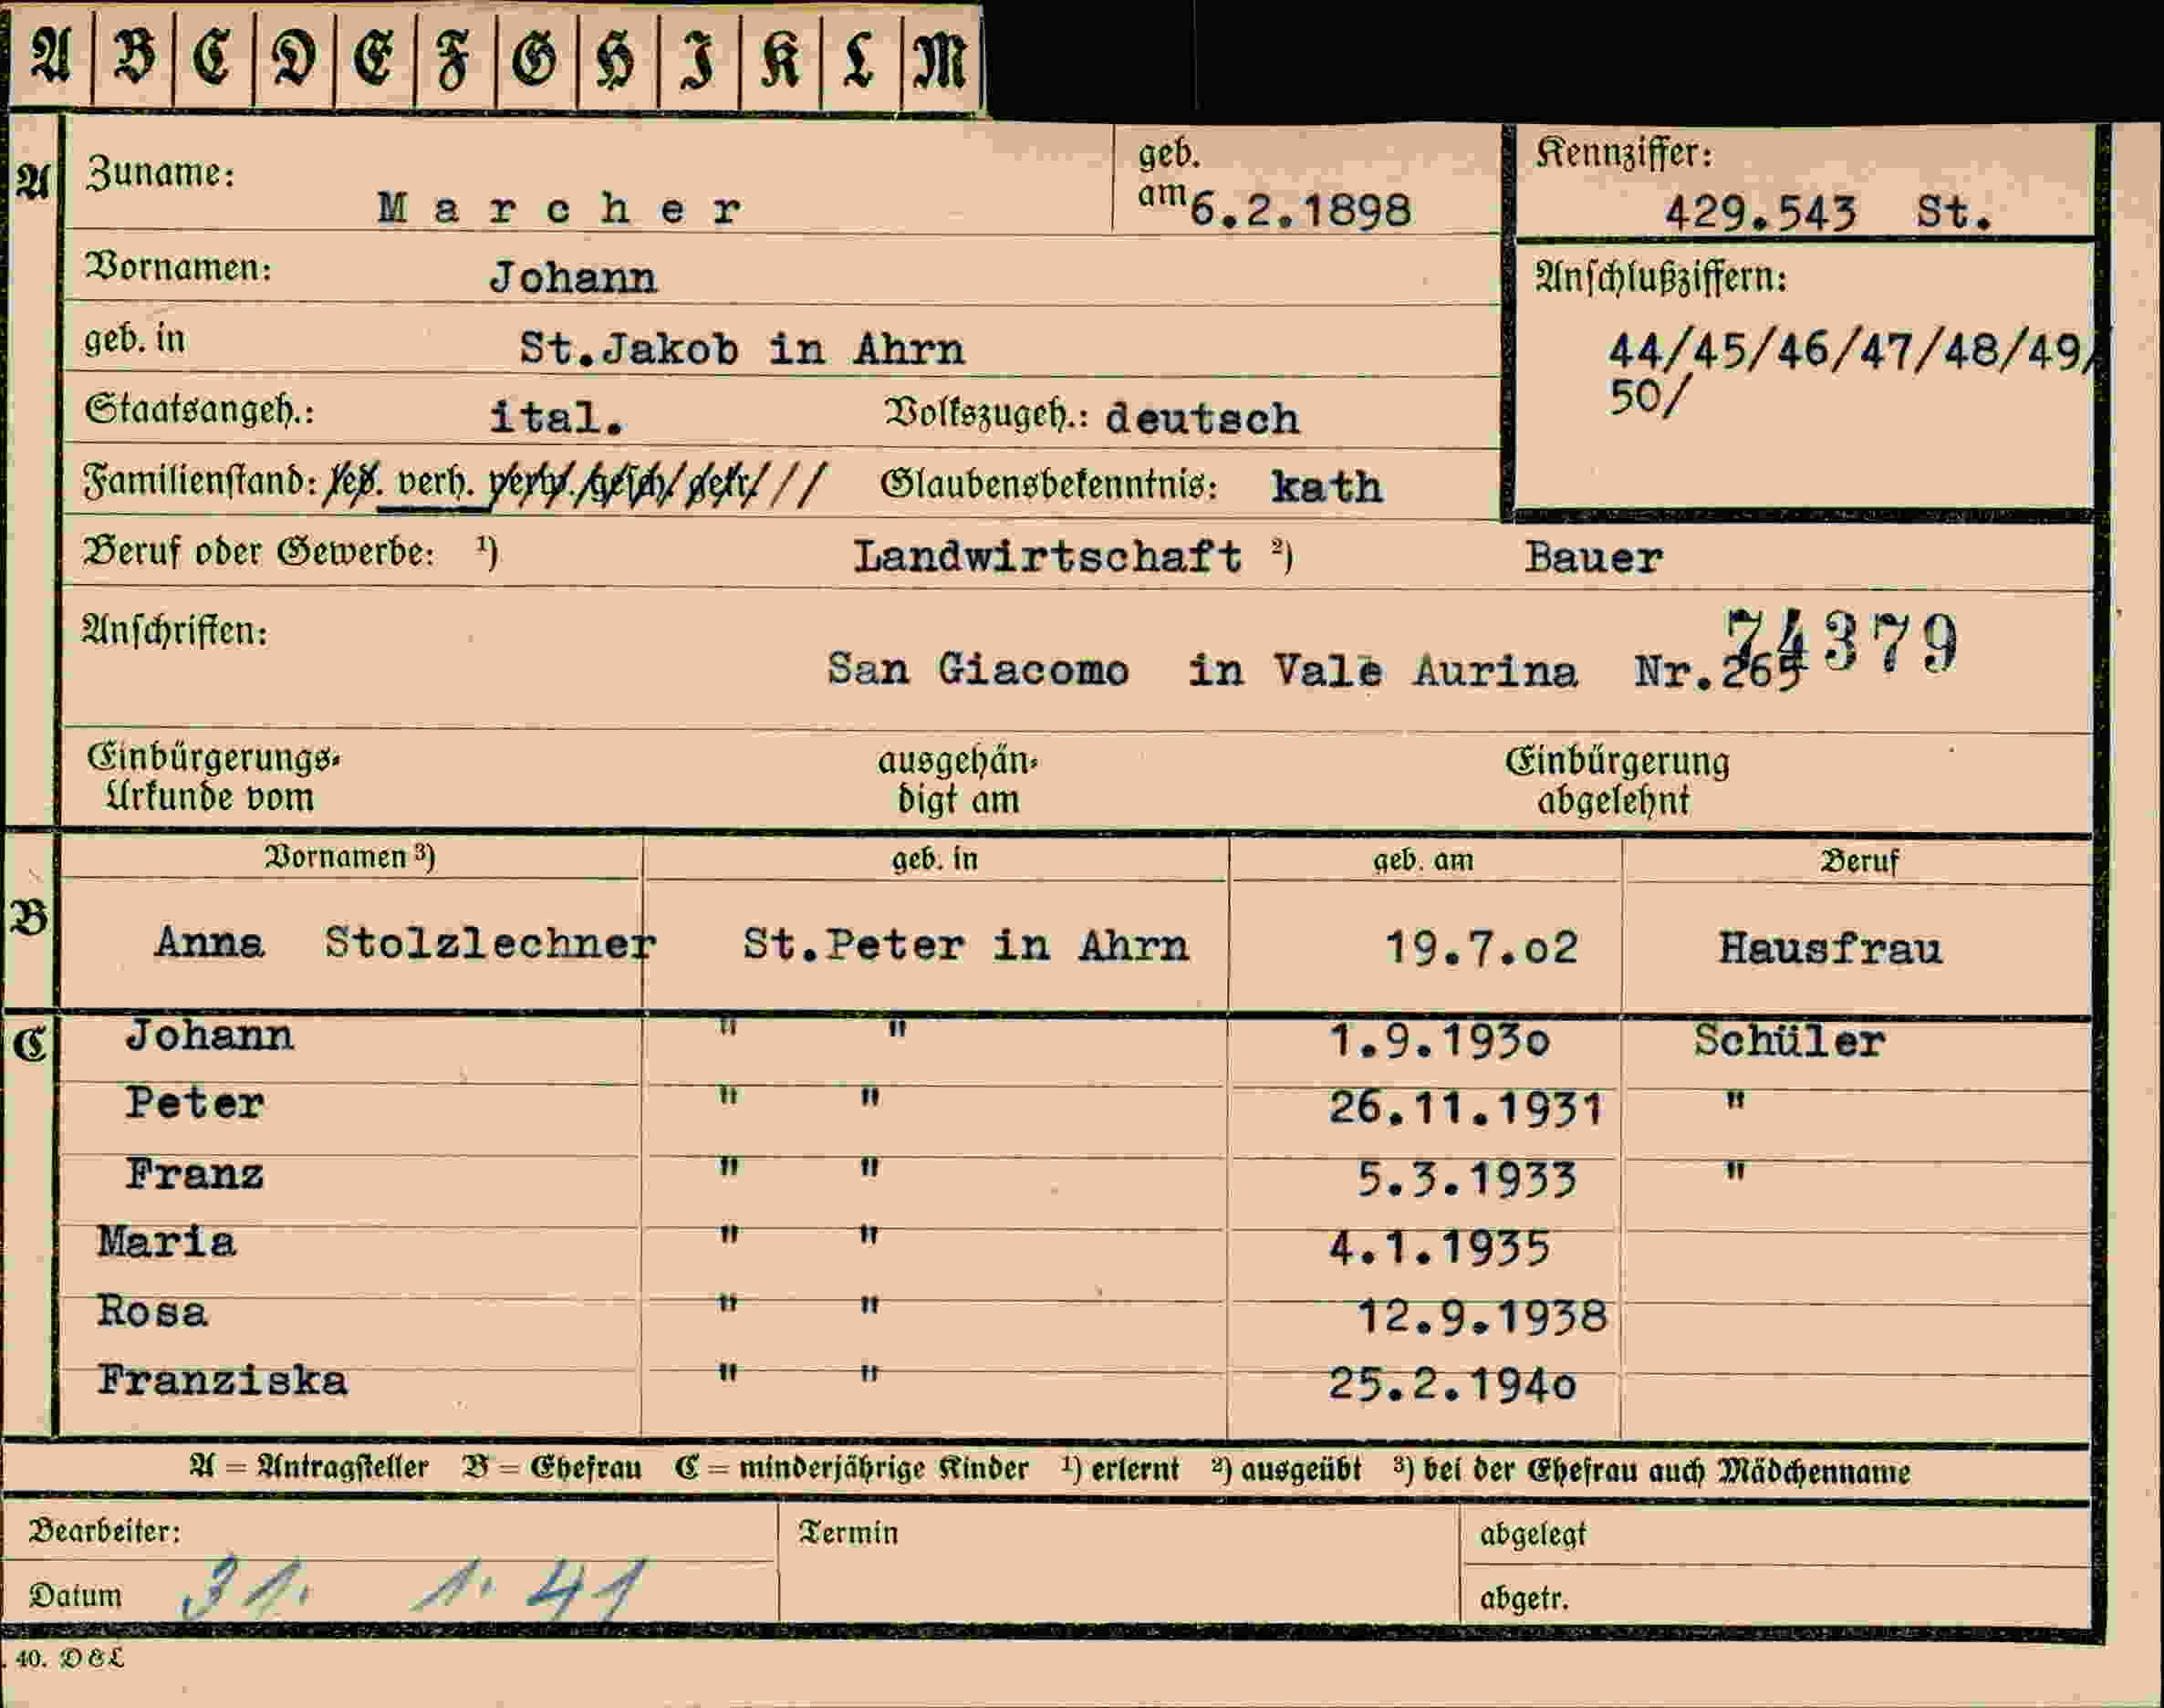 A B C D E F G H I K L M
A Zuname: Marcher geb. am 6.2.1898 Kennziffer: 429.543 St.
Vornamen: Johann Anschlußziffern:
geb. in St.Jakob in Ahrn 44/45/46/47/48/49/
50/
Staatsangeh.: ital. Volkszugeh.: deutsch
Familienstand: led. verh. verw. gesch. getr. Glaubensbekenntnis: kath
Beruf oder Gewerbe: ¹) Landwirtschaft ²) Bauer
Anschriften: 74379
San Giacomo in Vale Aurina Nr.265
Einbürgerungs- ausgehän- Einbürgerung
Urkunde vom digt am abgelehnt
Vornamen ³) geb. in geb. am Beruf
B Anna Stolzlechner St.Peter in Ahrn 19.7.o2 Hausfrau
C Johann " " 1.9.193o Schüler
Peter " " 26.11.1931 "
Franz " " 5.3.1933 "
Maria " " 4.1.1935
Rosa " " 12.9.1938
Franziska " " 25.2.194o
A = Antragsteller B = Ehefrau C = minderjährige Kinder ¹) erlernt ²) ausgeübt ³) bei der Ehefrau auch Mädchenname
Bearbeiter: Termin abgelegt
Datum 31. 1. 41 abgetr.
. 40. D&L